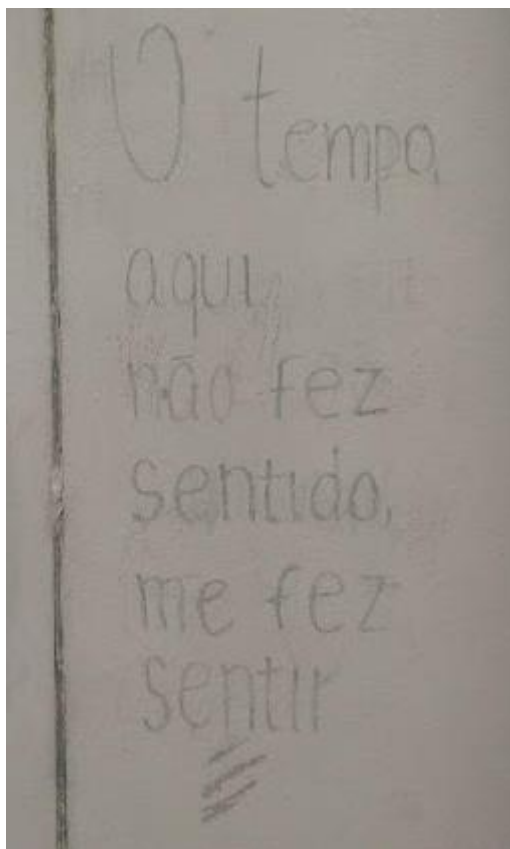 O tempo,
aqui,
não fez
sentido,
me fez
sentir